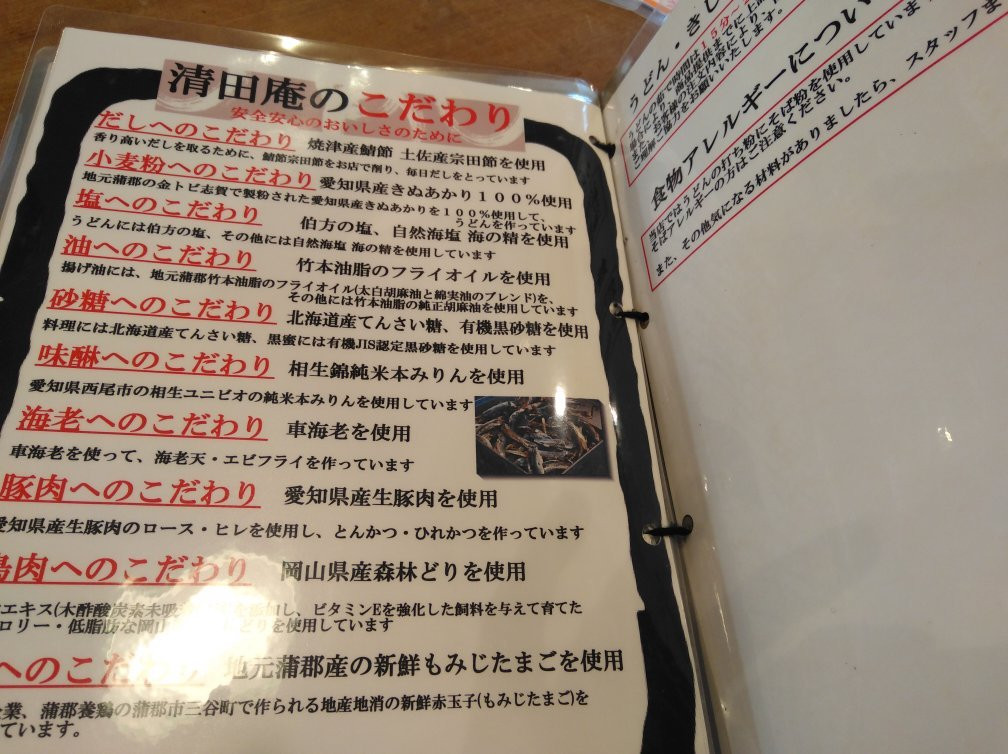 清田庵のこだわり
安全安心のおいしさのために
だしへのこだわり 焼津産鯖節 土佐産宗田節を使用
香り高いだしを取るために、鯖節宗田節をお店で削り、毎日だしをとっています
小麦粉へのこだわり 愛知県産きぬあかり100%使用
地元蒲郡の金トビ志賀で製粉された愛知県産きぬあかりを100%使用して、
うどんを作っています
塩へのこだわり 伯方の塩、自然海塩 海の精を使用
うどんには伯方の塩、その他には自然海塩 海の精を使用しています
油へのこだわり 竹本油脂のフライオイルを使用
揚げ油には、地元蒲郡竹本油脂のフライオイル(太白胡麻油と綿実油のブレンド)を、
その他には竹本油脂の純正胡麻油を使用しています
砂糖へのこだわり 北海道産てんさい糖、有機黒砂糖を使用
料理には北海道産てんさい糖、黒蜜には有機JIS認定黒砂糖を使用しています
味醂へのこだわり 相生錦純米本みりんを使用
愛知県西尾市の相生ユニビオの純米本みりんを使用しています
海老へのこだわり 車海老を使用
車海老を使って、海老天・エビフライを作っています
豚肉へのこだわり 愛知県産生豚肉を使用
愛知県産生豚肉のロース・ヒレを使用し、とんかつ・ひれかつを作っています
鳥肉へのこだわり 岡山県産森林どりを使用
エキス(木酢酸炭素未吸 し、ビタミンEを強化した飼料を与えて育てた
ロリー・低脂肪な岡山 どりを使用しています
へのこだわり 地元蒲郡産の新鮮もみじたまごを使用
業、蒲郡養鶏の蒲郡市三谷町で作られる地産地消の新鮮赤玉子(もみじたまご)を
ています。
うどん・きし
食物アレルギーについ
当店ではうどんの打ち粉にそば粉を使用していま
そばアレルギーの方はご注意ください。
また、その他気になる材料がありましたら、スタッフま